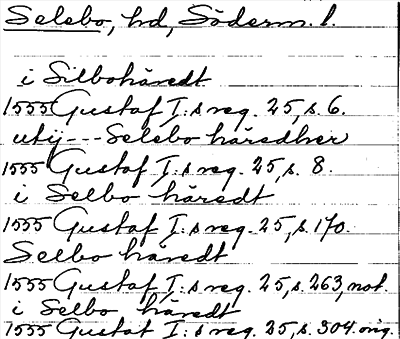 Selebo, hd, Söderm. l.
i Silbohäredt
1555 Gustaf I:s reg. 25, s. 6.
utij --- Selebo häredher
1555 Gustaf I:s reg. 25, s. 8.
i Selbo häredt
1555 Gustaf I:s reg. 25, s. 170.
Selbo häredt
1555 Gustaf I:s reg. 25, s. 263, not.
i Selbo häredt
1555 Gustaf I:s reg. 25, s. 304. orig.